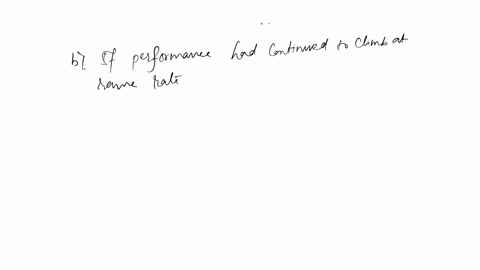 b). If performance had continued to climb at
same rate